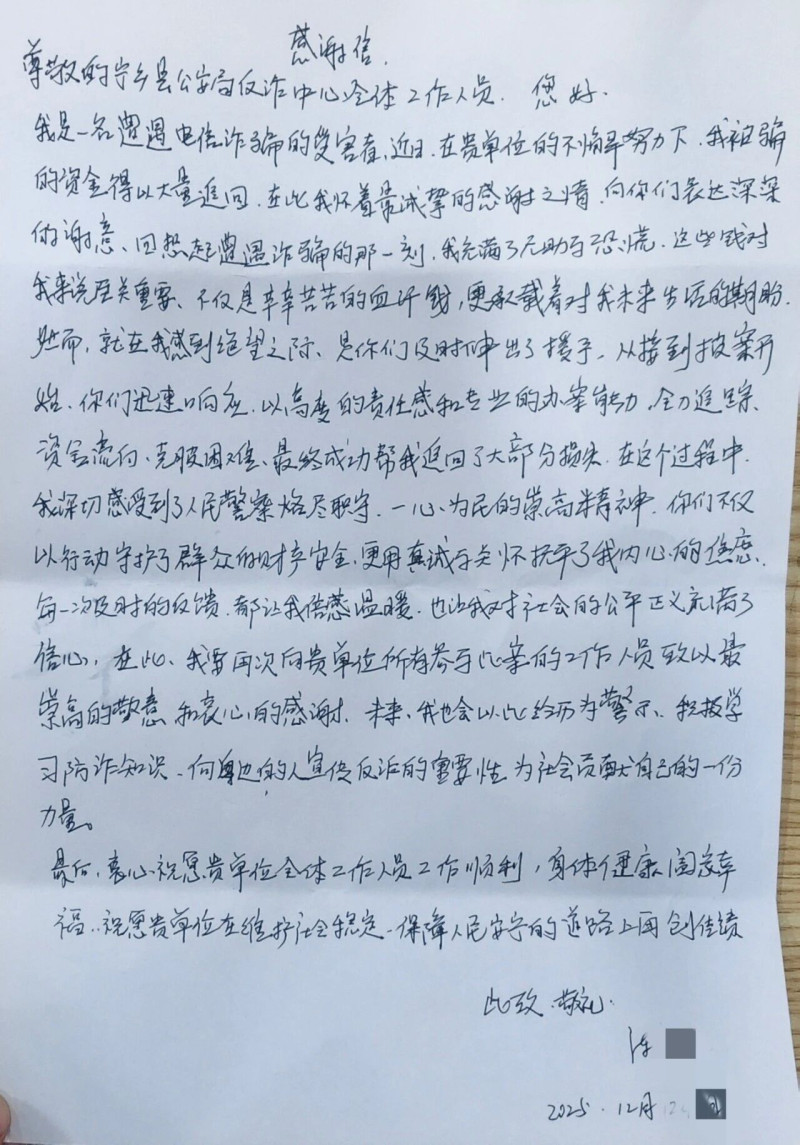 感谢信.
尊敬的宁乡县公安局反诈中心全体工作人员. 您好.
我是一名遭遇电信诈骗的受害者,近日.在贵单位的不懈努力下.我被骗
的资金得以大量追回.在此我怀着最诚挚的感谢之情.向你们表达深深
的谢意、回想起遭遇诈骗的那一刻.我充满了无助与恐慌.这些钱对
我来说至关重要、不仅是辛辛苦苦的血汗钱,更承载着对我未来生活的期盼.
然而,就在我感到绝望之际、是你们及时伸出了援手.从接到报案开
始、你们迅速响应.以高度的责任感和专业的办案能力.全力追踪、
资金流向、克服困难、最终成功帮我追回了大部分损失.在这个过程中.
我深切感受到了人民警察恪尽职守.一心为民的崇高精神.你们不仅
以行动守护了群众的财产安全、更用真诚与关怀抚平了我内心的焦虑、
每一次及时的反馈.都让我倍感温暖.也让我对社会的公平正义充满了
信心,在此、我要再次向贵单位所有参与此案的工作人员致以最
崇高的敬意和衷心的感谢.未来、我也会以此经历为警示、积极学
习防诈知识、向身边的人宣传反诈的重要性,为社会贡献自己的一份
力量。
最后,衷心祝愿贵单位全体工作人员工作顺利,身体健康,阖家幸
福..祝愿贵单位在维护社会稳定、保障人民安宁的道路上再创佳绩
此致.敬礼.
2025.12月